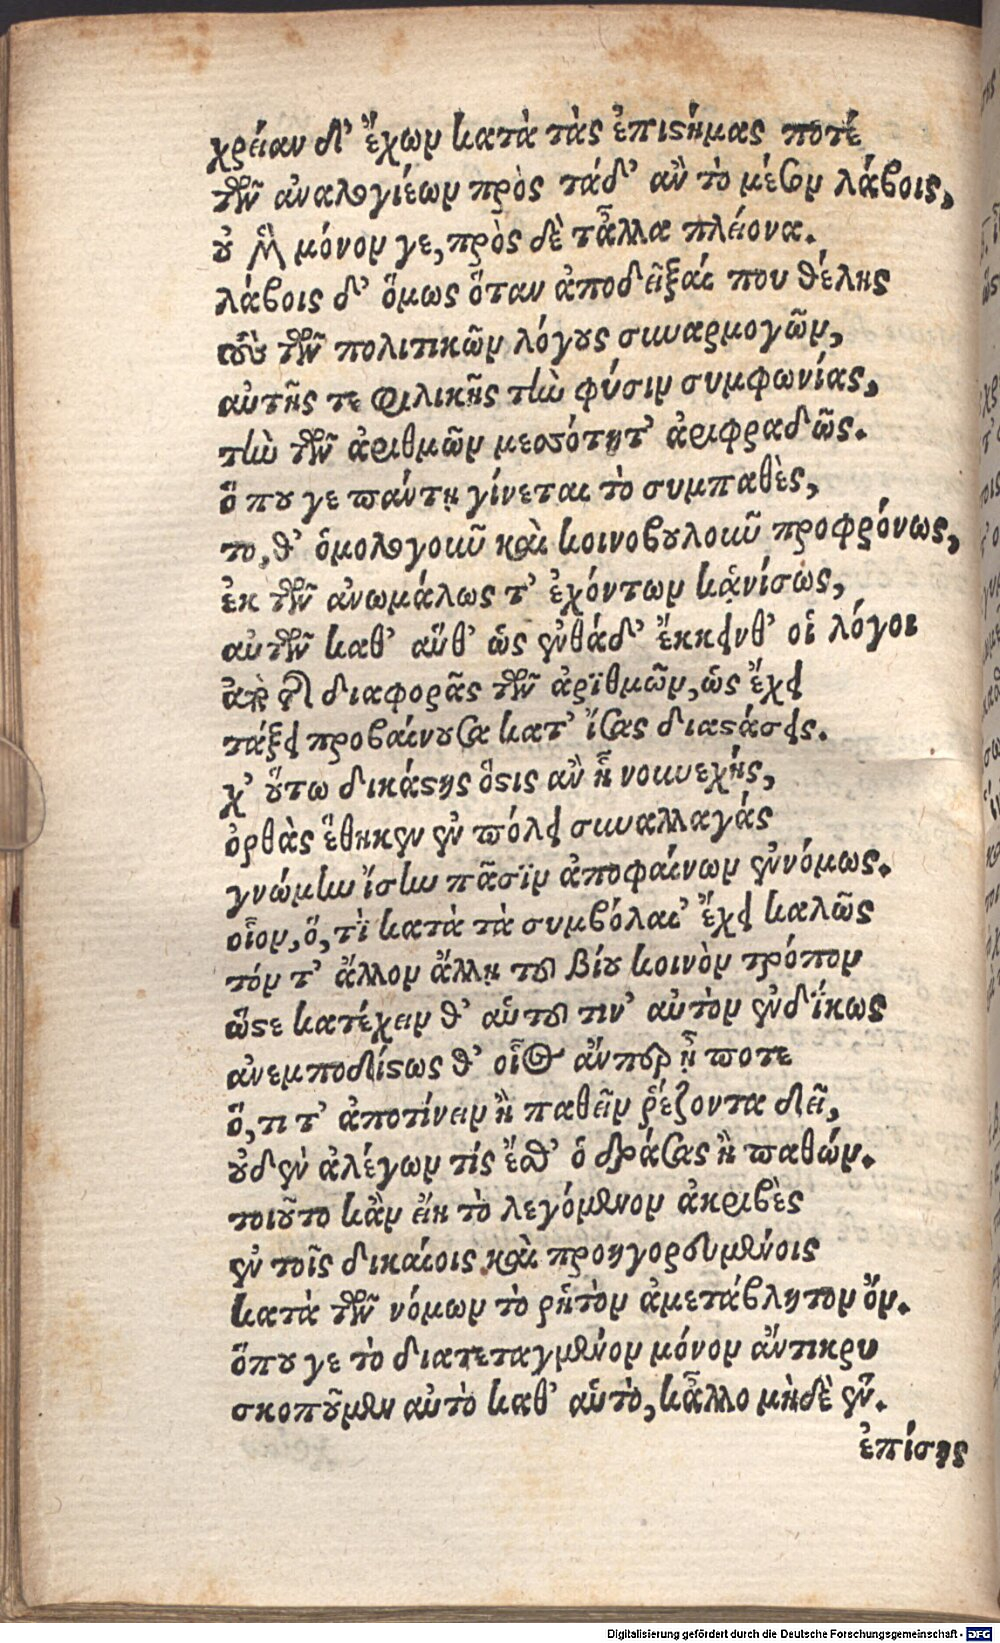 χρείαν δ' ἔχων κατὰ τὰς ἐπιστήμας ποτέ
τῶν ἀναλογιέων πρὸς τάδ' ἂν τὸ μέσον λάβοις,
οὐ μὴ μόνον γε, πρὸς δὲ τἆλλα πλείονα.
λάβοις δ' ὅμως ὅταν ἀποδεῖξαί που θέλῃς
τῶν πολιτικῶν λόγους συναρμογῶν,
αὐτῆς τε φιλικῆς τὴν φύσιν συμφωνίας,
τὴν τῶν ἀριθμῶν μεσότητ' ἀριφραδῶς.
ὅπου γε πάντῃ γίνεται τὸ συμπαθὲς,
το, θ' ὁμολογοῦν καὶ κοινοβουλοῦν προφρόνως,
ἐκ τῶν ἀνωμάλως τ' ἐχόντων κἀνίσως,
αὐτῶν καθ' αὕθ' ὡς ἐνθάδ' ἔκκεινθ' οἱ λόγοι
διαφορᾶς τῶν ἀριθμῶν, ὡς ἔχει
τάξει προβαίνουσα κατ' ἴσας διαστάσεις.
χ' οὕτω δικάστης ὅστις ἂν ᾖ νουνεχής,
ὀρθὰς ἔθηκεν ἐν πόλει συναλλαγάς
γνώμην ἴσην πᾶσιν ἀποφαίνων ἐννόμως.
οἷον, ὅ, τι κατὰ τὰ συμβόλαι' ἔχει καλῶς
τόν τ' ἄλλον ἄλλῃ τοῦ βίου κοινὸν τρόπον
ὥστε κατέχειν θ' αὑτοῦ τιν' αὐτὸν ἐνδίκως
ἀνεμποδίστως θ' οἷος ἄνπερ ᾖ ποτε
ὅ, τι τ' ἀποτίνειν ἢ παθεῖν ῥέζοντα δεῖ,
οὐδὲν ἀλέγων τίς ἔσθ' ὁ δράσας ἢ παθών.
τοιοῦτο κἂν εἴη τὸ λεγόμενον ἀκριβὲς
ἐν τοῖς δικαίοις καὶ προηγορευμένοις
κατὰ τῶν νόμων τὸ ῥητὸν ἀμετάβλητον ὄν.
ὅπου γε τὸ διατεταγμένον μόνον ἄντικρυ
σκοποῦμεν αὐτὸ καθ' αὑτὸ, κἄλλο μηδὲ ἕν.
ἐπίσης
Digitalisierung gefördert durch die Deutsche Forschungsgemeinschaft - DFG